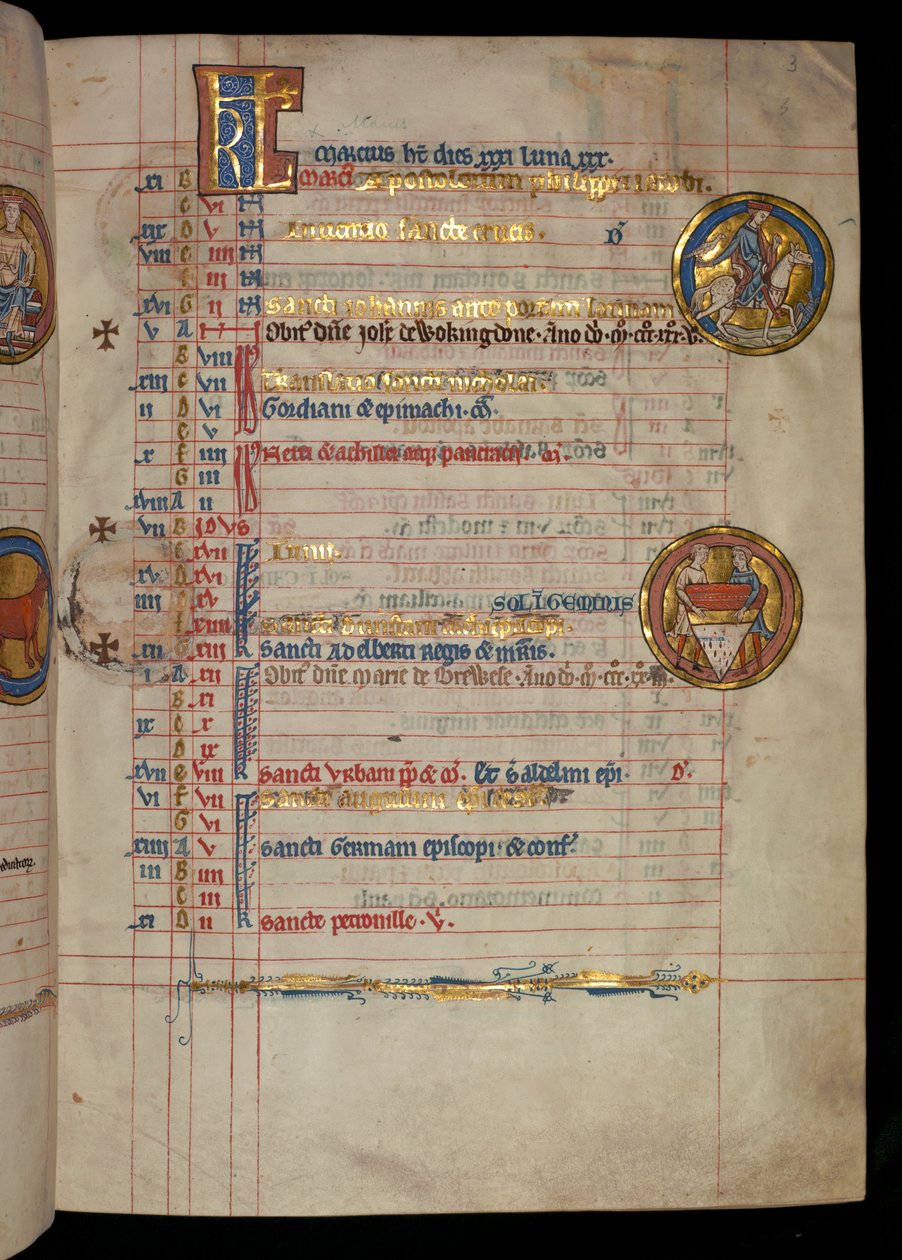 3
KL
Marcius ht̄ dies xxxi luna xxx.
xi B Marcii Apostolorum philippi & iacobi.
C vi N
xix D v N Inventio sancte crucis. D̄
viii E iiii N
F iii N
xvi G ii N Sancti iohannis ante portam latinam
v A Obit' dn̄e Joh̄e de Wokingdone. Āno dī. mͦ. ccͦc. xxx. v.
B viii
xiii C vii Translatio sancti nicholai.
ii D vi Gordiani & epimachi. m̄.
E v
x F iiii Nerei & achillei atq; pancracii. m̄.
G iii
xviii A ii
vii B IDVS
C xvii Iunii.
xv D xvi
iiii E xv SOL Ī GEMINIS
F xiiii Sancti dunstani archiepiscopi.
xii G xiii K Sancti Adelberti Regis & m̄ris.
i A xii Obit' dn̄e Marie de Brewese. Āno dī. mͦ. ccͦc. xx
B xi
ix C x
D ix
xvii E viii K Sancti Urbani pp̄ & m̄. Et s̄ aldelmi ep̄i. D̄.
vi F vii Sancti augustini
G vi
xiiii A v Sancti Germani episcopi & conf'.
iii B iiii
C iii
xi D ii K Sancte petronille. V̄.